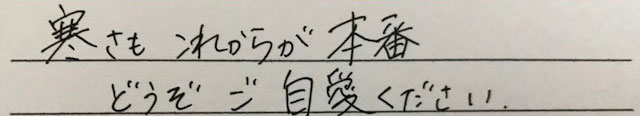 寒さも これからが 本番
どうぞ ご 自愛ください.